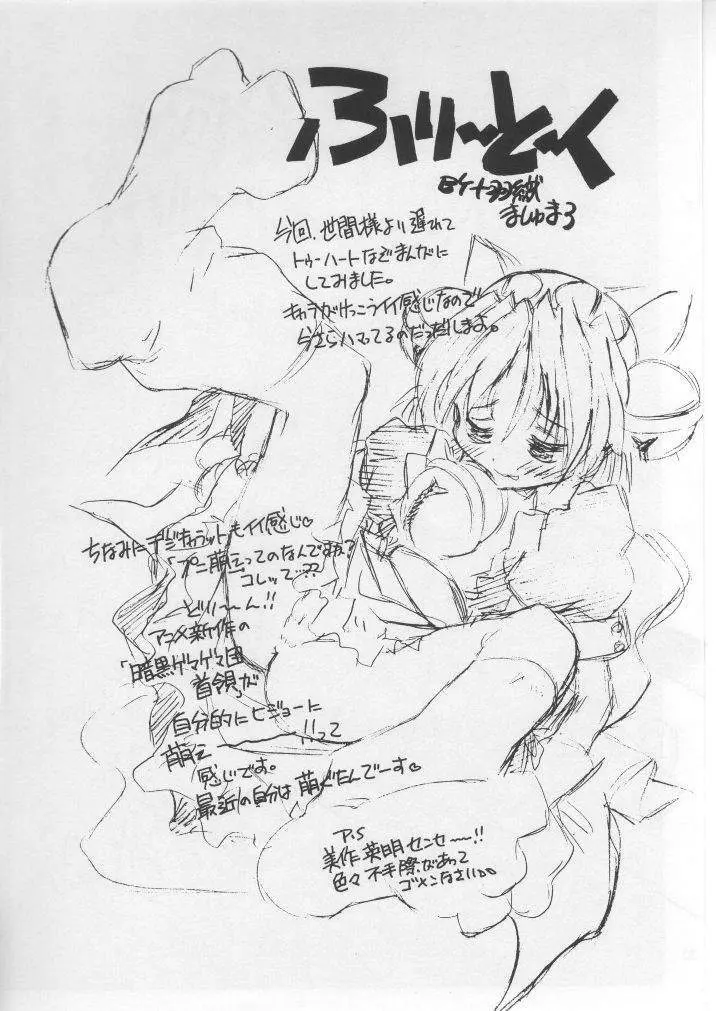 ふりーとーく
ロケット羽賊
ましゅまろ
今回、世間様より遅れて
トゥーハートなどまんがに
してみました。
キャラがけっこうイイ感じなので
今さらハマってるのだっだしまよ。
ちなみにデジキャラットもイイ感じ♡
「プニ萌えってのなんですね?
コレッて…??
どりーーん!!
アニメ新作の
「暗黒ゲマゲマ団
首領」が
自分的にヒジョーに
萌えー!!って
感じです。
最近の自分は萌ぐたんでーす♡
P.S
美作英明センセー!!
色々不手際があって
ゴメンなさいっ